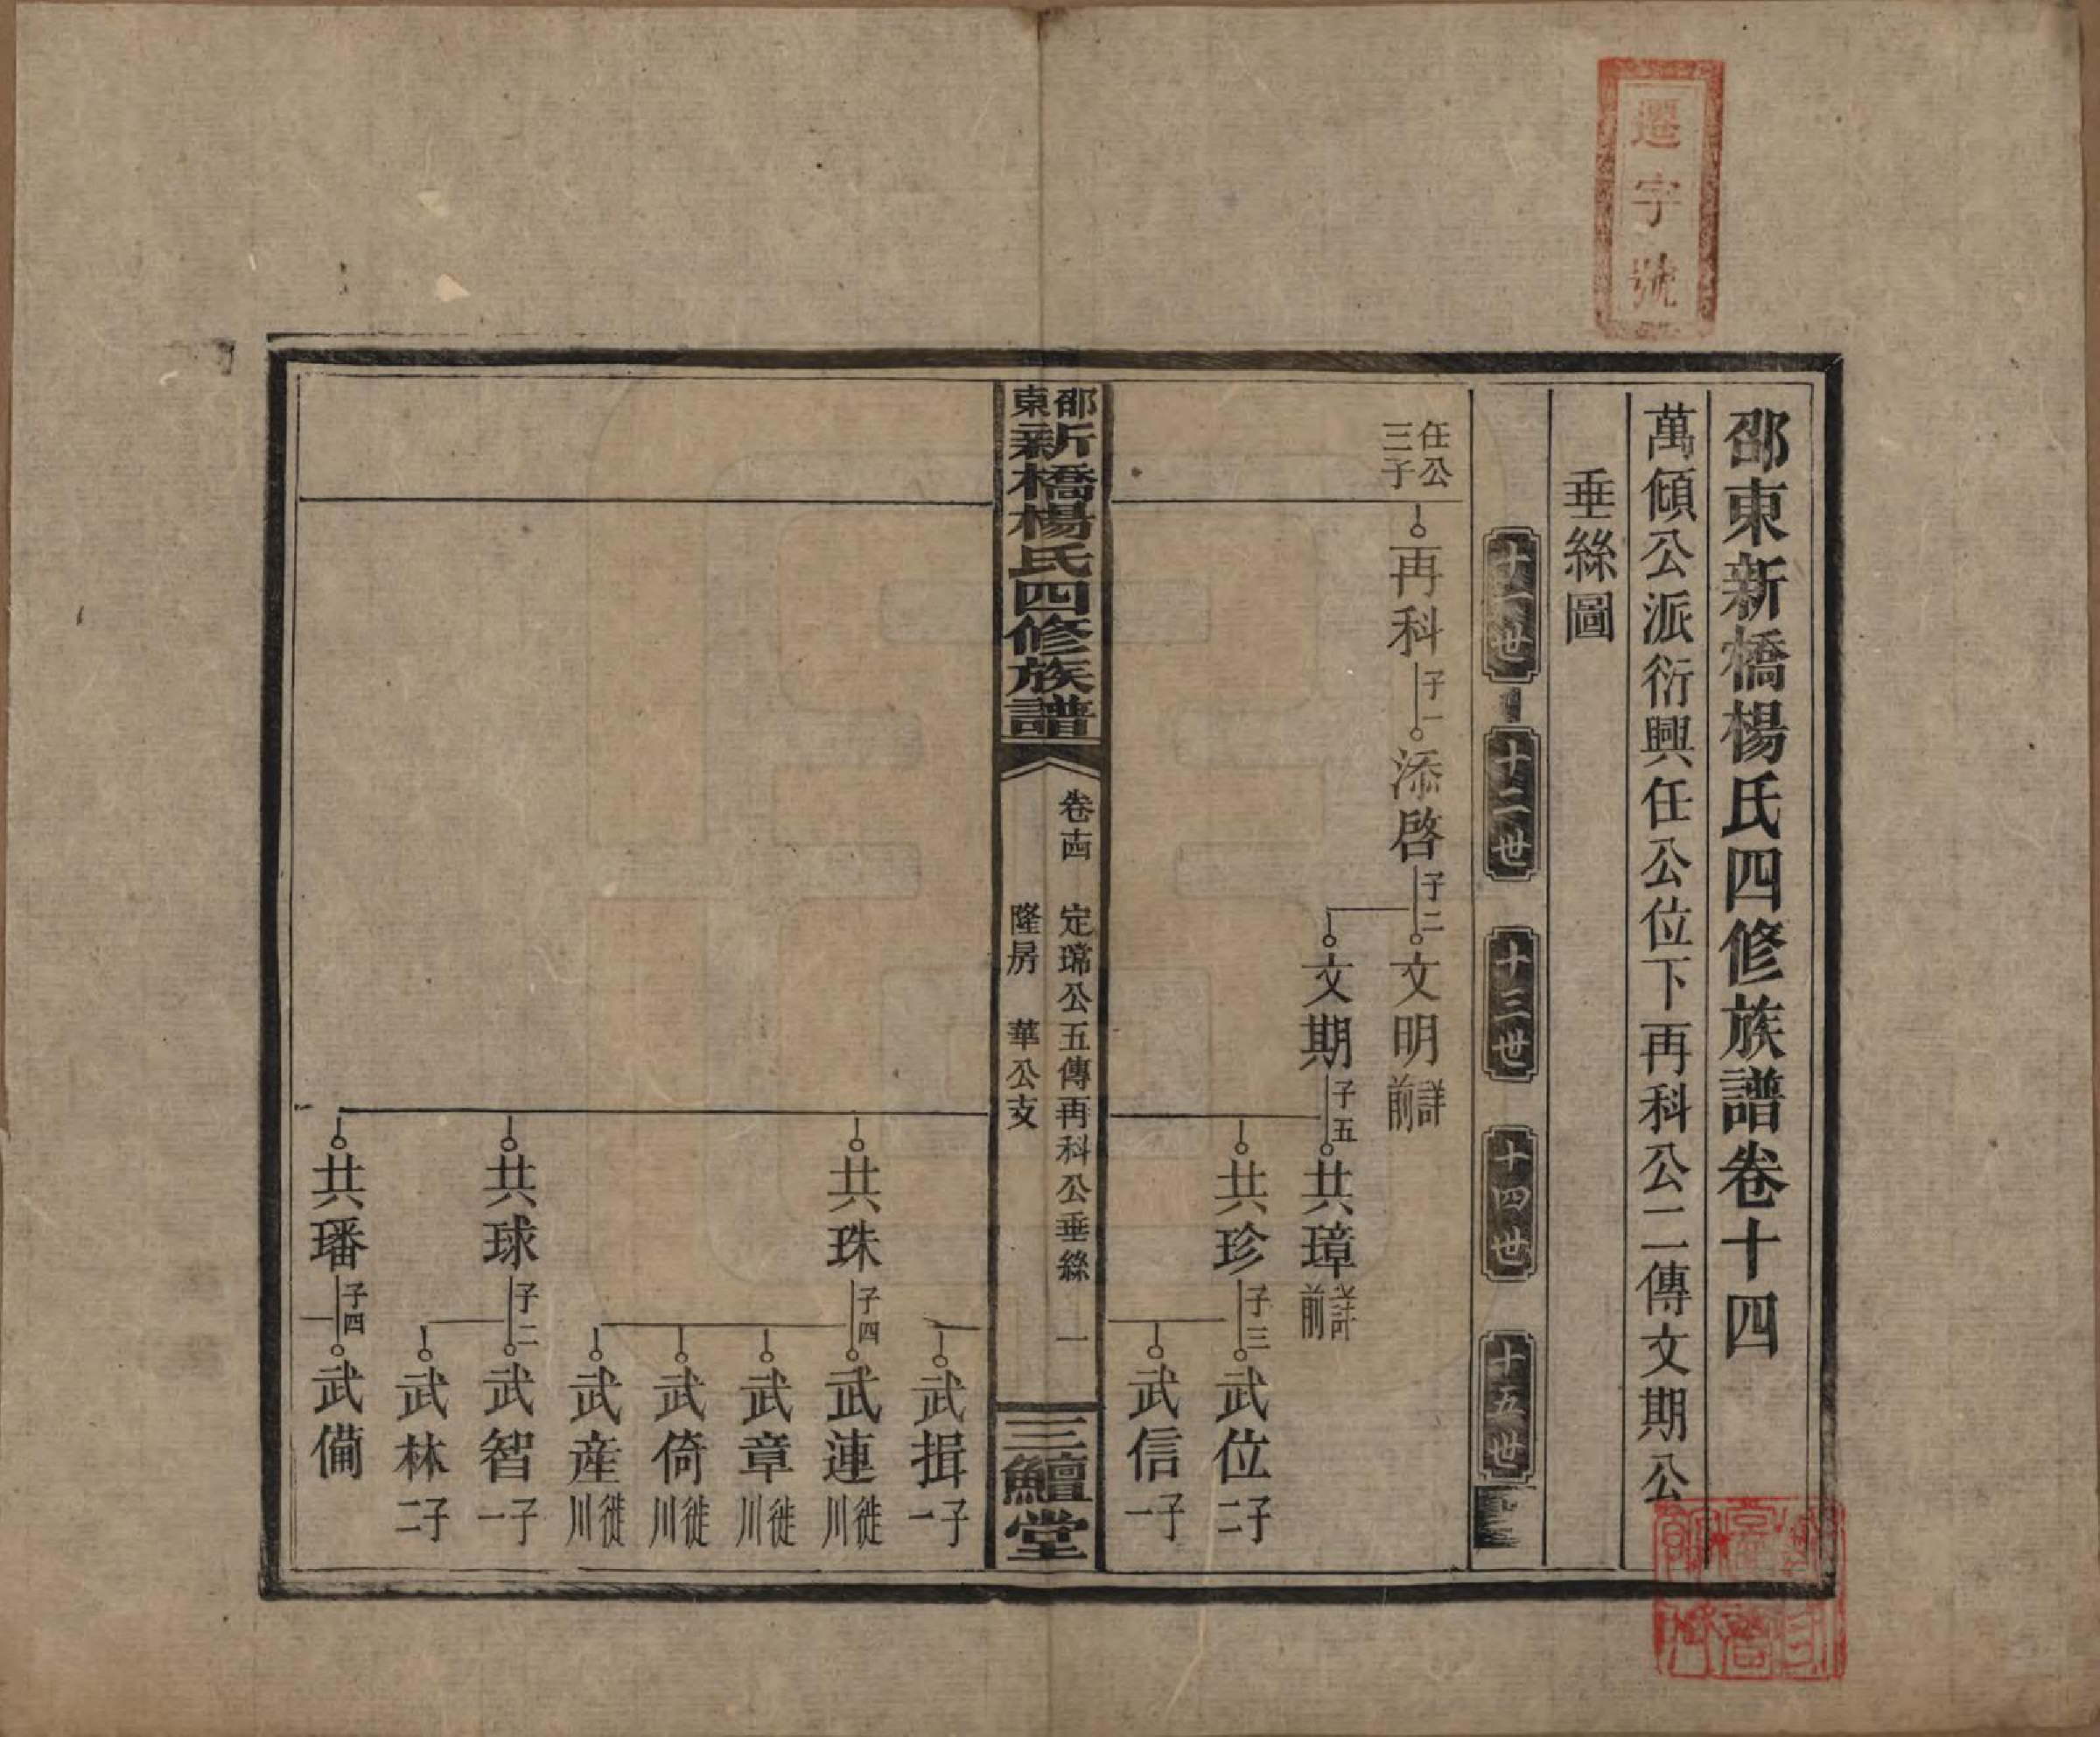 遷字號
邵東新橋楊氏四修族譜卷十四
萬傾公派衍興任公位下再科公二傳文期公
垂絲圖
十一世
十二世
十三世
十四世
十五世
任公三子
再科 子一
添啓 子二
文明 詳前
文期 子五
共璋 詳前
共珍 子三
武位 子二
武信 子一
邵東新橋楊氏四修族譜
卷十四 定瑺公五傳再科公垂絲 一
隆房 華公支
三鱣堂
武揖 子一
共珠 子四
武連 徙川
武章 徙川
武倚 徙川
武産 徙川
共球 子二
武智 子一
武林 子二
共璠 子四
武備